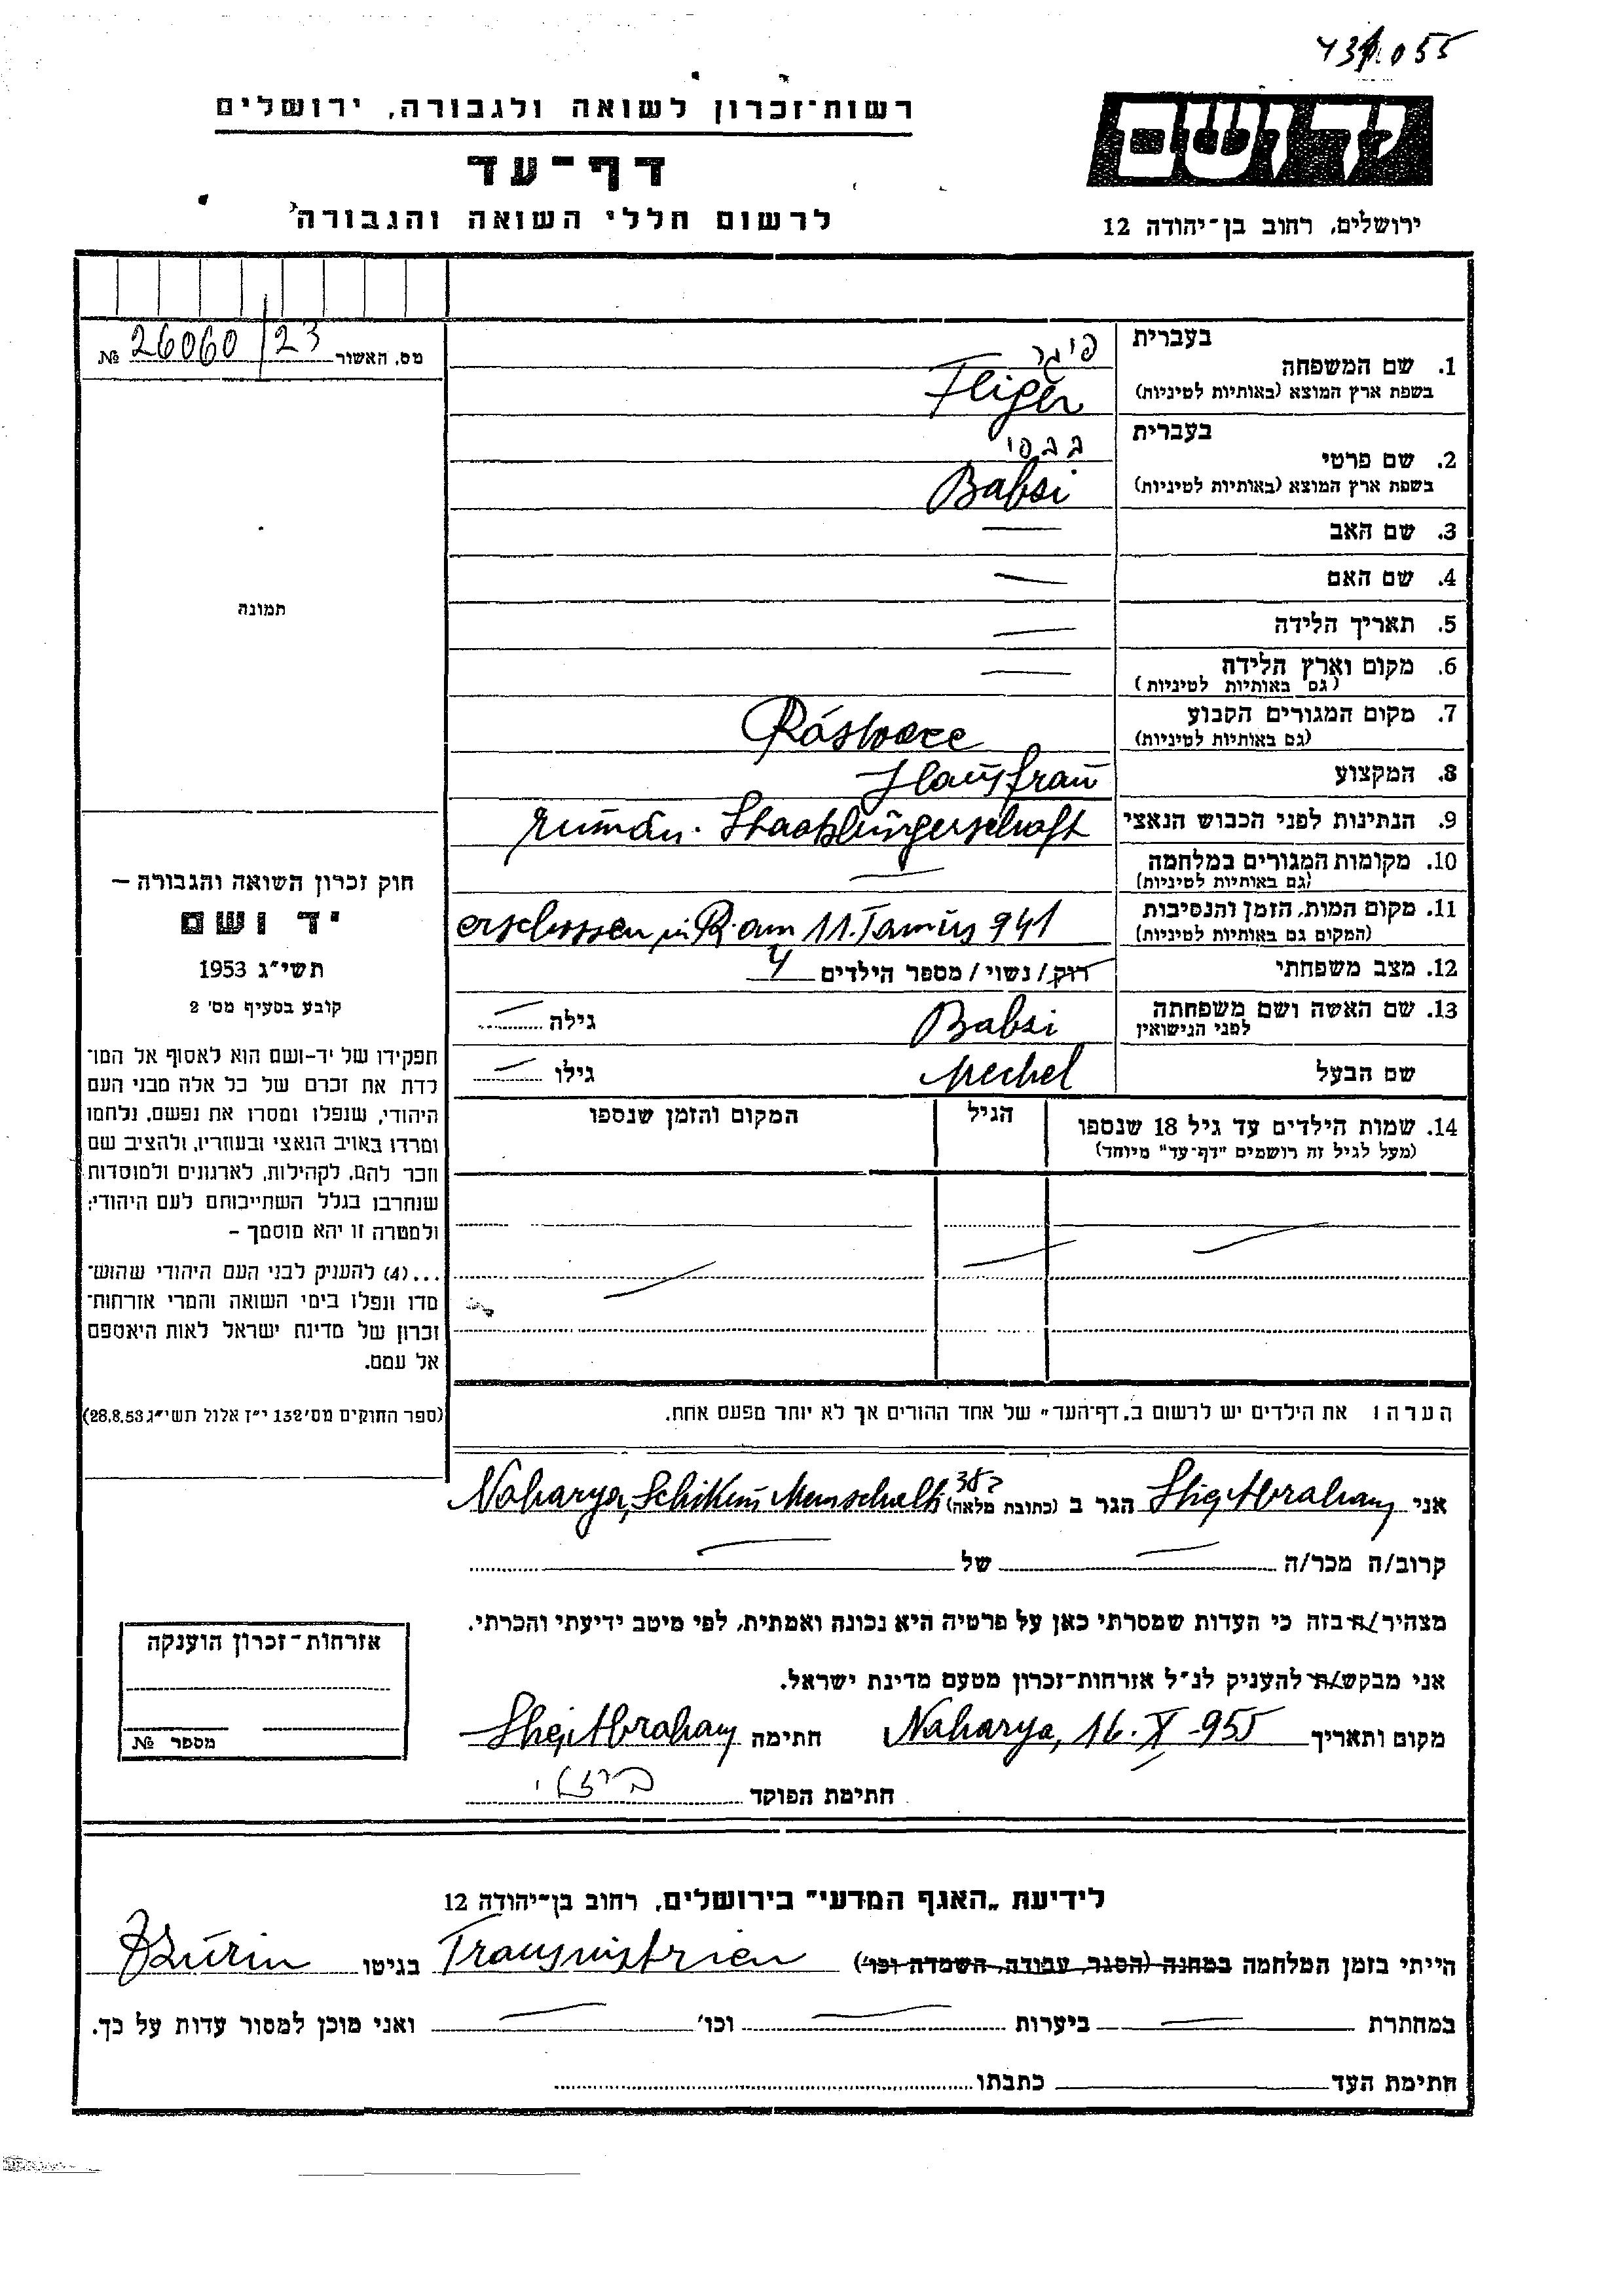 431055
רשות-זכרון לשואה ולגבורה, ירושלים
יד ושם
דף-עד
לרשום חללי השואה והגבורה
ירושלים, רחוב בן-יהודה 12
מס. האשור 26060/23 №
תמונה
חוק זכרון השואה והגבורה –
יד ושם
תשי״ג 1953
קובע בסעיף מס׳ 2
תפקידו של יד-ושם הוא לאסוף אל המו־
לדת את זכרם של כל אלה מבני העם
היהודי, שנפלו ומסרו את נפשם, נלחמו
ומרדו באויב הנאצי ובעוזריו, ולהציב שם
וזכר להם, לקהילות, לארגונים ולמוסדות
שנחרבו בגלל השתייכותם לעם היהודי;
ולמטרה זו יהא מוסמך –
...(4) להעניק לבני העם היהודי שהוש־
מדו ונפלו בימי השואה והמרי אזרחות־
זכרון של מדינת ישראל לאות היאספם
אל עמם.
(ספר החוקים מס׳ 132 י״ז אלול תשי״ג 28.8.53)
1. שם המשפחה בעברית
בשפת ארץ המוצא (באותיות לטיניות) Fliger
2. שם פרטי בעברית בבסי
בשפת ארץ המוצא (באותיות לטיניות) Babsi
3. שם האב —
4. שם האם —
5. תאריך הלידה —
6. מקום וארץ הלידה —
(גם באותיות לטיניות)
7. מקום המגורים הקבוע
(גם באותיות לטיניות)
8. המקצוע Hausfrau
9. הנתינות לפני הכבוש הנאצי rumän. Staatsbürgerschaft
10. מקומות המגורים במלחמה —
(גם באותיות לטיניות)
11. מקום המות, הזמן והנסיבות erschossen in R. am 11. Tamus 941
(המקום גם באותיות לטיניות)
12. מצב משפחתי רוק/נשוי/ מספר הילדים 4
13. שם האשה ושם משפחתה Babsi גילה —
לפני הנישואין
שם הבעל Mechel גילו —
14. שמות הילדים עד גיל 18 שנספו הגיל המקום והזמן שנספו
(מעל לגיל זה רושמים "דף-עד" מיוחד)
הערה: את הילדים יש לרשום ב„דף-העד" של אחד ההורים אך לא יותר מפעם אחת.
אני Abraham הגר ב (כתובת מלאה) Naharya, Schikun Memschalti 38
קרוב/ה מכר/ה — של —
מצהיר/ה בזה כי העדות שמסרתי כאן על פרטיה היא נכונה ואמתית, לפי מיטב ידיעתי והכרתי.
אני מבקש/ת להעניק לנ״ל אזרחות-זכרון מטעם מדינת ישראל.
מקום ותאריך Naharya, 16. X. 955 חתימה Abraham
חתימת הפוקד
אזרחות-זכרון הוענקה
מספר №
לידיעת „האגף המדעי" בירושלים, רחוב בן-יהודה 12
הייתי בזמן המלחמה במחנה (הסגר, עבודה, השמדה וכו׳) Transnistrien בגיטו Dzurin
במחתרת — ביערות — וכו׳ — ואני מוכן למסור עדות על כך.
חתימת העד כתבתו